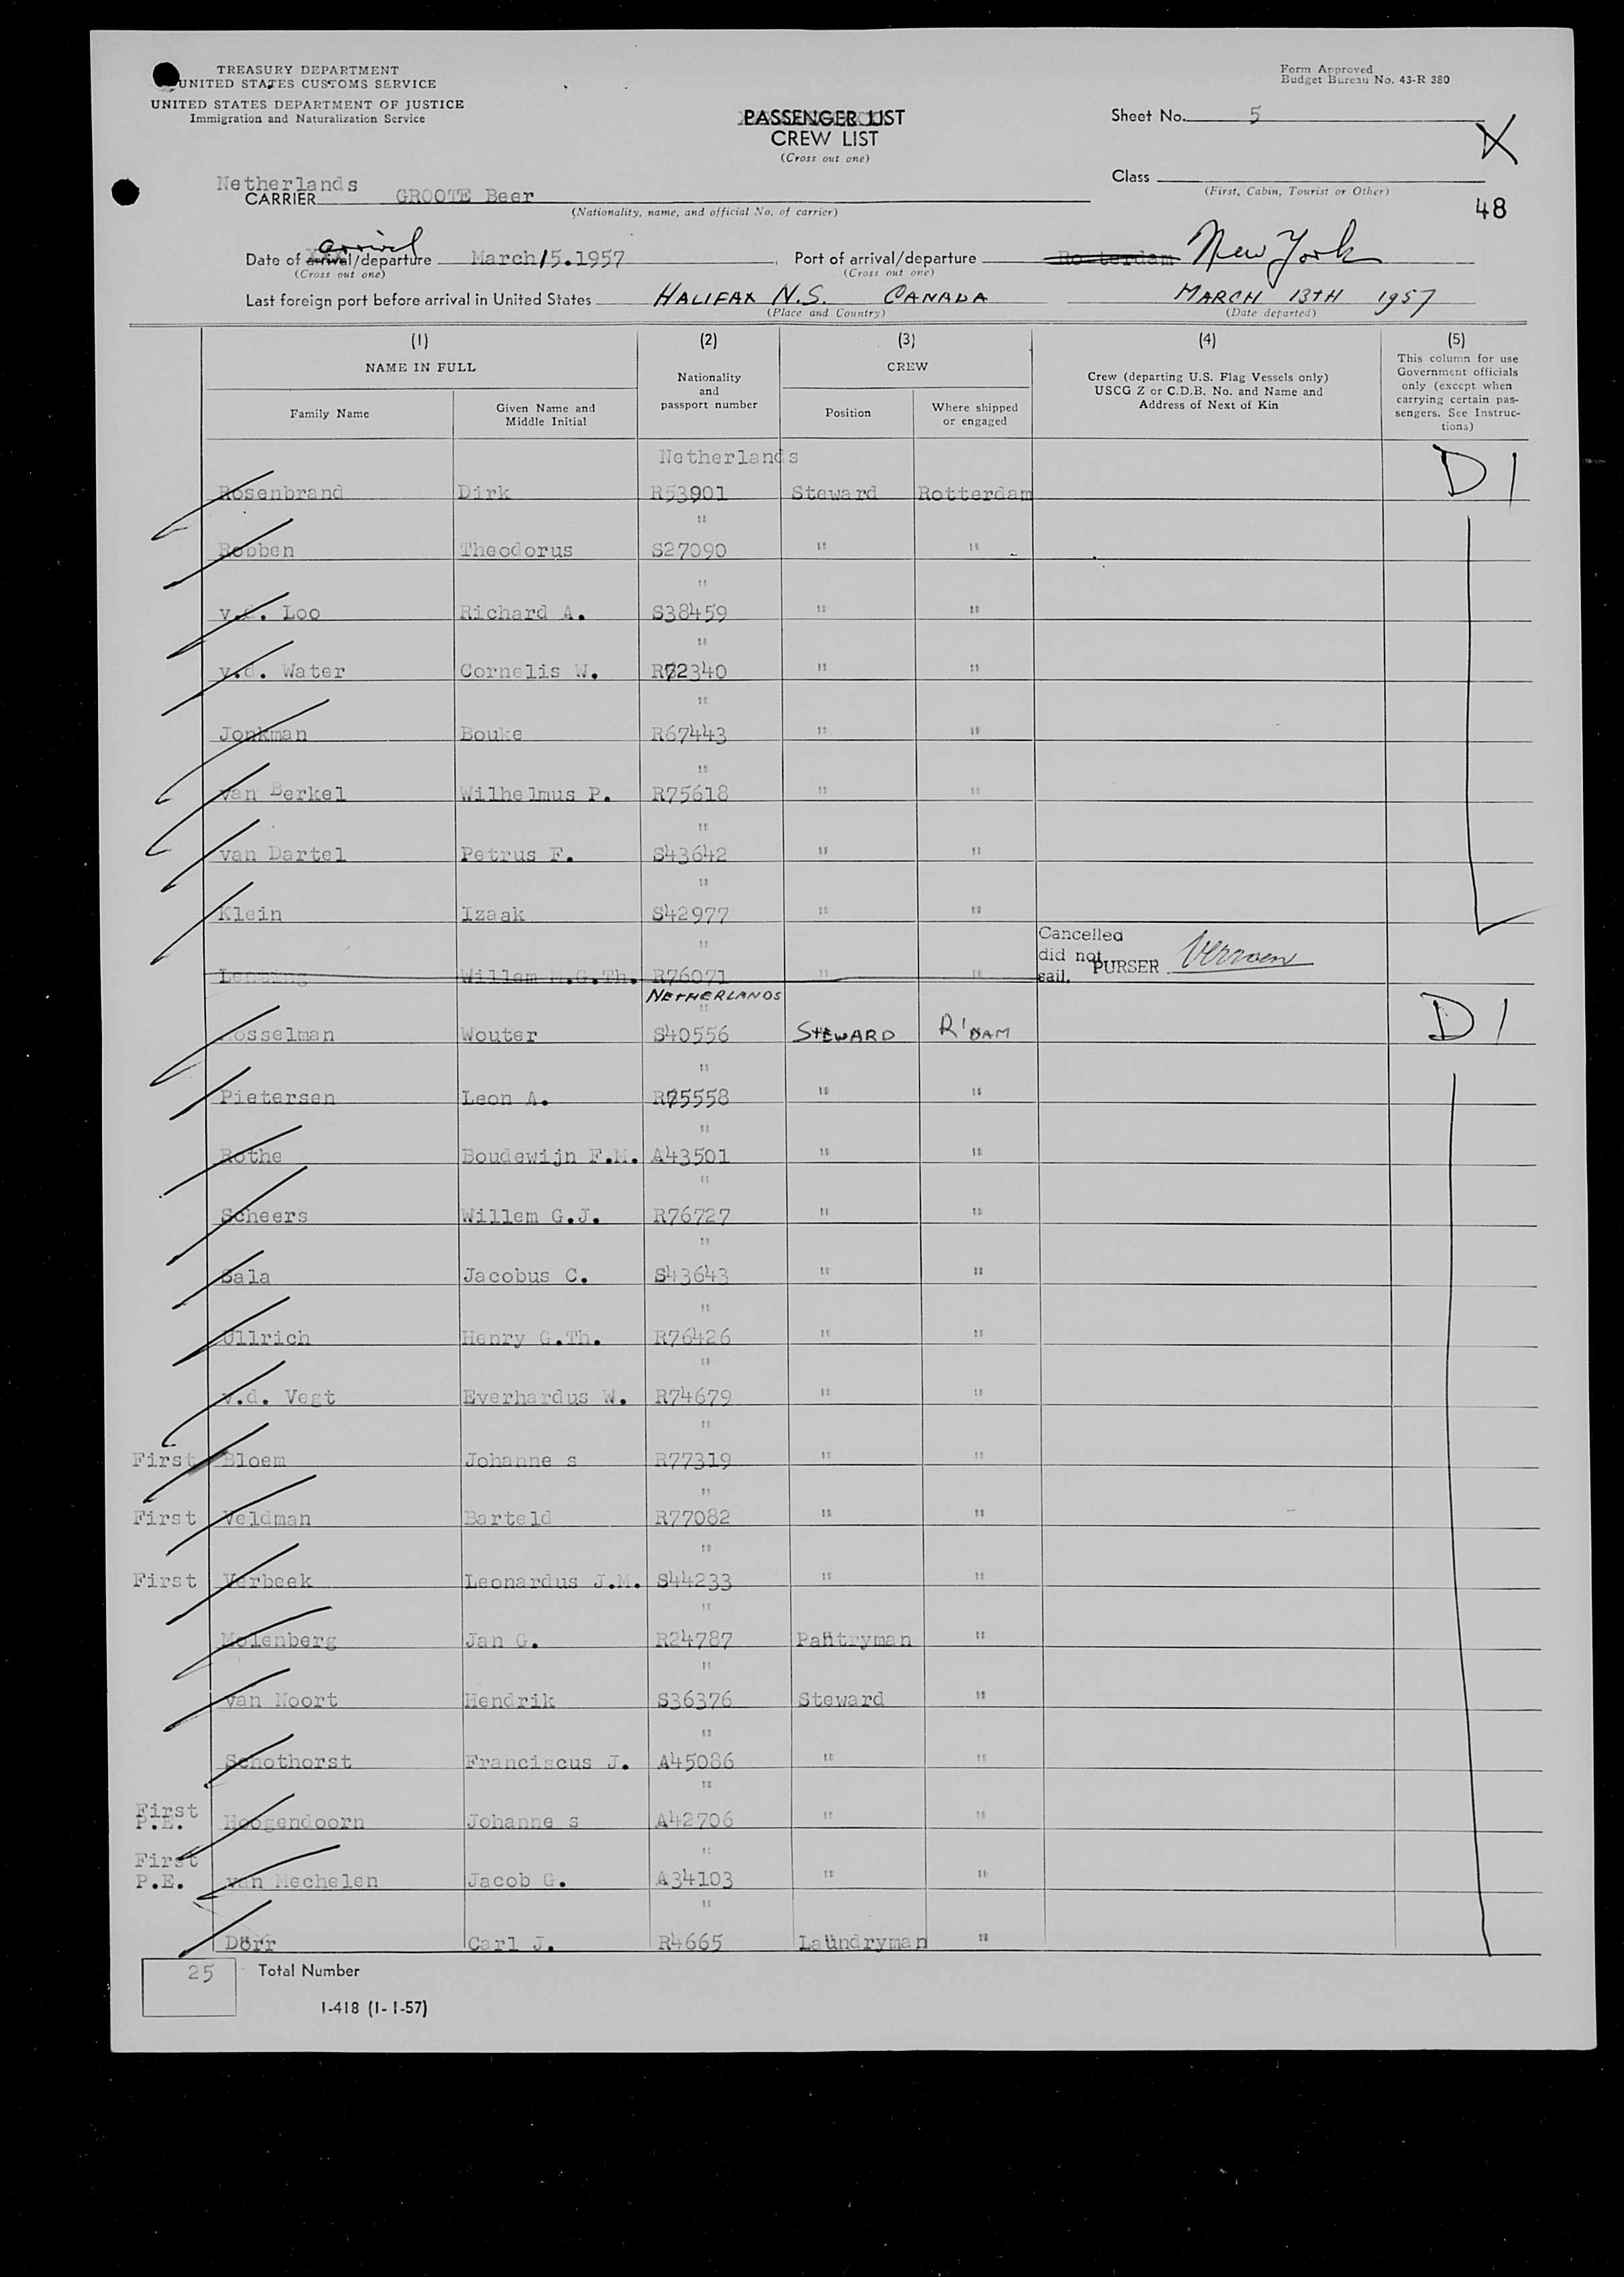 TREASURY DEPARTMENT
UNITED STATES CUSTOMS SERVICE
UNITED STATES DEPARTMENT OF JUSTICE
Immigration and Naturalization Service
Form Approved
Budget Bureau No. 43-R 380
PASSENGER LIST
CREW LIST
(Cross out one)
Sheet No. 5
X
Class
(First, Cabin, Tourist or Other)
48
Netherlands
CARRIER GROOTE Beer
(Nationality, name, and official No. of carrier)
arrival
Date of arrival/departure March 15.1957
(Cross out one)
Port of arrival/departure Rotterdam New York
(Cross out one)
Last foreign port before arrival in United States HALIFAX N.S. CANADA MARCH 13TH 1957
(Place and Country) (Date departed)
(1) (2) (3) (4) (5)
NAME IN FULL
Family Name
Given Name and Middle Initial
Nationality and passport number
CREW
Position
Where shipped or engaged
Crew (departing U.S. Flag Vessels only)
USCG Z or C.D.B. No. and Name and
Address of Next of Kin
This column for use
Government officials
only (except when
carrying certain pas-
sengers. See Instruc-
tions)
Netherlands
Rosenbrand Dirk R53901 Steward Rotterdam D 1
"
Robben Theodorus S27090 " "
"
v.d. Loo Richard A. S38459 " "
"
v.d. Water Cornelis W. R72340 " "
"
Jonkman Bouke R67443 " "
"
van Berkel Wilhelmus P. R75618 " "
"
van Dartel Petrus F. S43642 " "
"
Klein Izaak S42977 " "
"
Lenting Willem M.G.Th. R76071 " " Cancelled did not sail. PURSER Verroen
NETHERLANDS
"
Mosselman Wouter S40556 STEWARD R'DAM D 1
"
Pietersen Leon A. R75558 " "
"
Rothe Boudewijn F.M. A43501 " "
"
Scheers Willem G.J. R76727 " "
"
Sala Jacobus C. S43643 " "
"
Ullrich Henry G.Th. R76426 " "
"
v.d. Vegt Everhardus W. R74679 " "
"
First Bloem Johanne s R77319 " "
"
First Veldman Barteld R77082 " "
"
First Verbeek Leonardus J.M. S44233 " "
"
Molenberg Jan G. R24787 Pantryman "
"
van Noort Hendrik S36376 Steward "
"
Schothorst Franciscus J. A45086 " "
"
First P.E. Hoogendoorn Johanne s A42706 " "
"
First P.E. van Mechelen Jacob G. A34103 " "
"
Dörr Carl J. R4665 Laundryman "
25 Total Number
I-418 (1-1-57)